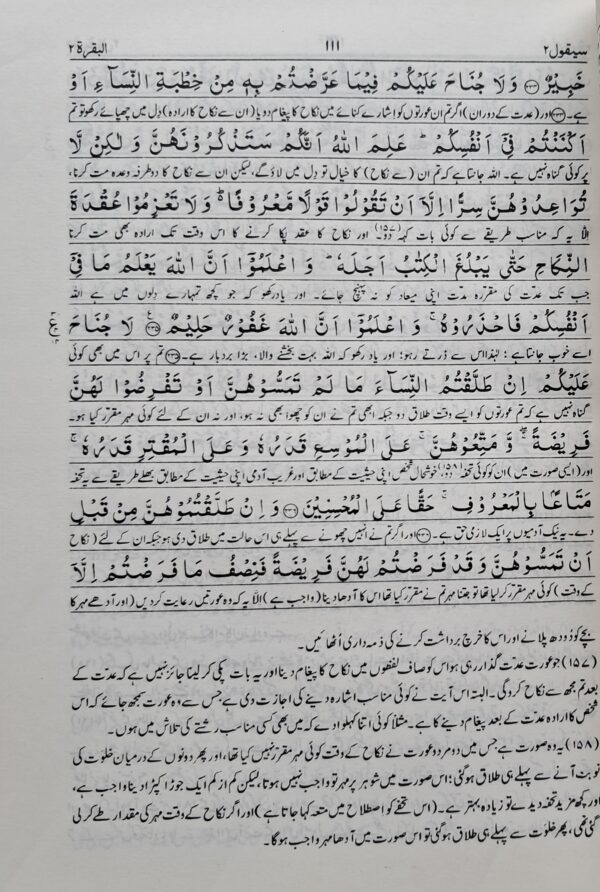 سیقول ۲ ۱۱۱ البقرة ۲
خَبِيْرٌ ﴿۲۳۴﴾ وَلَا جُنَاحَ عَلَيْكُمْ فِيْمَا عَرَّضْتُمْ بِهٖ مِنْ خِطْبَةِ النِّسَآءِ اَوْ
ہے۔ ﴿۲۳۴﴾ اور (عدت کے دوران) اگر تم ان عورتوں کو اشارے کنائے میں نکاح کا پیغام دو یا (ان سے نکاح کا ارادہ) دِل میں چھپائے رکھو تو تم
اَكْنَنْتُمْ فِيْٓ اَنْفُسِكُمْ ؕ عَلِمَ اللّٰهُ اَنَّكُمْ سَتَذْكُرُوْنَهُنَّ وَلٰكِنْ لَّا
پر کوئی گناہ نہیں ہے۔ اللہ جانتا ہے کہ تم ان (سے نکاح) کا خیال تو دِل میں لاؤ گے، لیکن ان سے نکاح کا دوطرفہ وعدہ مت کرنا،
تُوَاعِدُوْهُنَّ سِرًّا اِلَّآ اَنْ تَقُوْلُوْا قَوْلًا مَّعْرُوْفًا ؕ۬ وَلَا تَعْزِمُوْا عُقْدَةَ
اِلَّا یہ کہ مناسب طریقے سے کوئی بات کہہ دو۔(۱۵۷) اور نکاح کا عقد پکا کرنے کا اس وقت تک ارادہ بھی مت کرنا
النِّكَاحِ حَتّٰى يَبْلُغَ الْكِتٰبُ اَجَلَهٗ ؕ وَاعْلَمُوْٓا اَنَّ اللّٰهَ يَعْلَمُ مَا فِيْٓ
جب تک عدّت کی مقرّرہ مدّت اپنی میعاد کو نہ پہنچ جائے۔ اور یاد رکھو کہ جو کچھ تمہارے دِلوں میں ہے اللہ
اَنْفُسِكُمْ فَاحْذَرُوْهُ ۚ وَاعْلَمُوْٓا اَنَّ اللّٰهَ غَفُوْرٌ حَلِيْمٌ ﴿۲۳۵﴾ لَا جُنَاحَ
اسے خوب جانتا ہے؛ لہٰذا اس سے ڈرتے رہو؛ اور یاد رکھو کہ اللہ بہت بخشنے والا، بڑا بردبار ہے۔ ﴿۲۳۵﴾ تم پر اس میں بھی کوئی
عَلَيْكُمْ اِنْ طَلَّقْتُمُ النِّسَآءَ مَا لَمْ تَمَسُّوْهُنَّ اَوْ تَفْرِضُوْا لَهُنَّ
گناہ نہیں ہے کہ تم عورتوں کو ایسے وقت طلاق دو جبکہ ابھی تم نے اُن کو چھوا بھی نہ ہو، اور نہ ان کے لئے کوئی مہر مقرّر کیا ہو۔
فَرِيْضَةً ۖۚ وَّمَتِّعُوْهُنَّ ۚ عَلَى الْمُوْسِعِ قَدَرُهٗ وَعَلَى الْمُقْتِرِ قَدَرُهٗ ۚ
اور (ایسی صورت میں) ان کو کوئی تحفہ دو،(۱۵۸) خوشحال شخص اپنی حیثیت کے مطابق اور غریب آدمی اپنی حیثیت کے مطابق بھلے طریقے سے یہ تحفہ
مَتَاعًۢا بِالْمَعْرُوْفِ ۚ حَقًّا عَلَى الْمُحْسِنِيْنَ ﴿۲۳۶﴾ وَاِنْ طَلَّقْتُمُوْهُنَّ مِنْ قَبْلِ
دے۔ یہ نیک آدمیوں پر ایک لازمی حق ہے۔ ﴿۲۳۶﴾ اور اگر تم نے انہیں چھونے سے پہلے ہی اس حالت میں طلاق دی ہو جبکہ ان کے لئے (نکاح
اَنْ تَمَسُّوْهُنَّ وَقَدْ فَرَضْتُمْ لَهُنَّ فَرِيْضَةً فَنِصْفُ مَا فَرَضْتُمْ اِلَّآ
کے وقت) کوئی مہر مقرّر کرلیا تھا تو جتنا مہر تم نے مقرّر کیا تھا اس کا آدھا دینا (واجب ہے) اِلَّا یہ کہ وہ عورتیں رعایت کردیں (اور آدھے مہر کا
بچے کو دُودھ پلانے اور اس کا خرچ برداشت کرنے کی ذمہ داری اُٹھائیں۔
(۱۵۷) جو عورت عدّت گذار رہی ہو اس کو صاف لفظوں میں نکاح کا پیغام دینا اور یہ بات پکی کر لینا جائز نہیں ہے کہ عدّت کے
بعد تم مجھ سے نکاح کرو گی۔ البتہ اس آیت نے کوئی مناسب اشارہ دینے کی اجازت دی ہے جس سے وہ عورت سمجھ جائے کہ اس
شخص کا ارادہ عدّت کے بعد پیغام دینے کا ہے۔ مثلاً کوئی اتنا کہلوا دے کہ میں بھی کسی مناسب رشتے کی تلاش میں ہوں۔
(۱۵۸) یہ وہ صورت ہے جس میں دو مرد و عورت نے نکاح کے وقت کوئی مہر مقرّر نہیں کیا تھا، اور پھر دونوں کے درمیان خلوت کی
نوبت آنے سے پہلے ہی طلاق ہوگئی؛ اس صورت میں شوہر پر مہر تو واجب نہیں ہوتا، لیکن کم از کم ایک جوڑا کپڑا دینا واجب ہے،
اور کچھ مزید تحفہ دیدے تو زیادہ بہتر ہے۔ (اس تحفے کو اصطلاح میں متعہ کہا جاتا ہے) اور اگر نکاح کے وقت مہر کی مقدار طے کرلی
گئی تھی، پھر خلوَت سے پہلے ہی طلاق ہوگئی تو اس صورت میں آدھا مہر واجب ہوگا۔